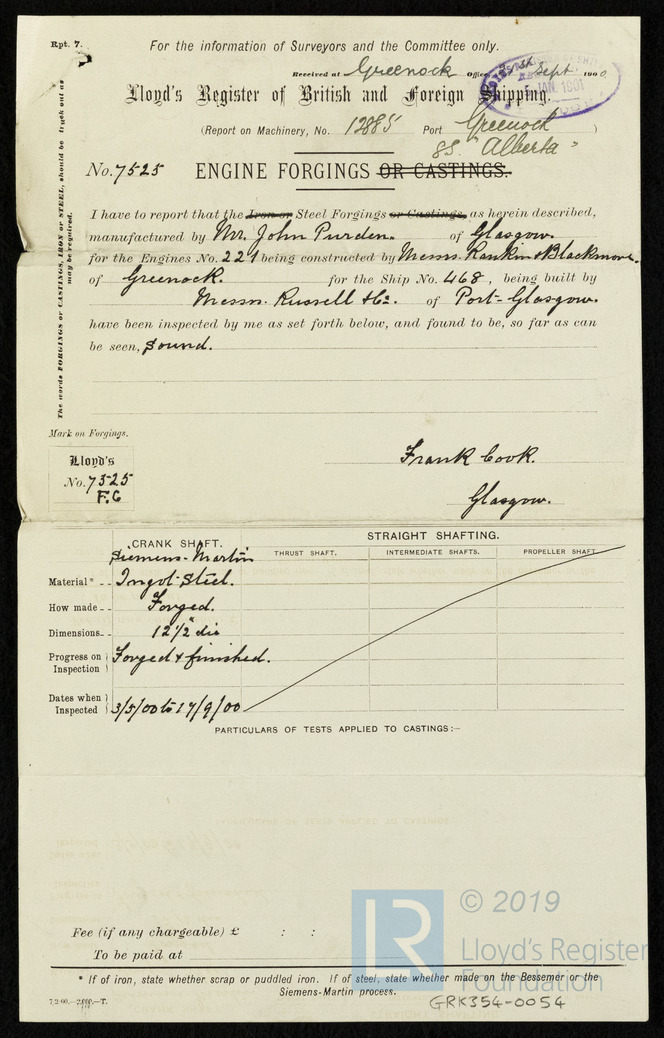 Rpt. 7.
For the information of Surveyors and the Committee only.
Received at Greenock Office 21st Sept 1900
Lloyd's Register of British and Foreign Shipping.
5 JAN 1901
(Report on Machinery, No. 12885 Port Greenock )
SS. "Alberta"
No. 7525 ENGINE FORGINGS OR CASTINGS.
The words FORGINGS or CASTINGS, IRON or STEEL, should be struck out as may be required.
I have to report that the Iron or Steel Forgings or Castings, as herein described,
manufactured by Mr. John Purden. of Glasgow.
for the Engines No. 221 being constructed by Messrs. Rankin & Blackmore.
of Greenock. for the Ship No. 468, being built by
Messrs. Russell & Co. of Port-Glasgow.
have been inspected by me as set forth below, and found to be, so far as can
be seen, sound.
Mark on Forgings.
Lloyd's
No. 7525
F.C
Frank Cook.
Glasgow.
CRANK SHAFT. STRAIGHT SHAFTING.
THRUST SHAFT. INTERMEDIATE SHAFTS. PROPELLER SHAFT
Siemens-Martin
Material* Ingot-Steel.
How made Forged.
Dimensions 12 1/2" dia
Progress on Inspection Forged & finished.
Dates when Inspected 3/5/00 to 17/9/00
PARTICULARS OF TESTS APPLIED TO CASTINGS:—
Fee (if any chargeable) £ : :
To be paid at
* If of iron, state whether scrap or puddled iron. If of steel, state whether made on the Bessemer or the
Siemens-Martin process.
7.2.00.—T.
GRK354-0054
LR
© 2019
Lloyd's Register
Foundation